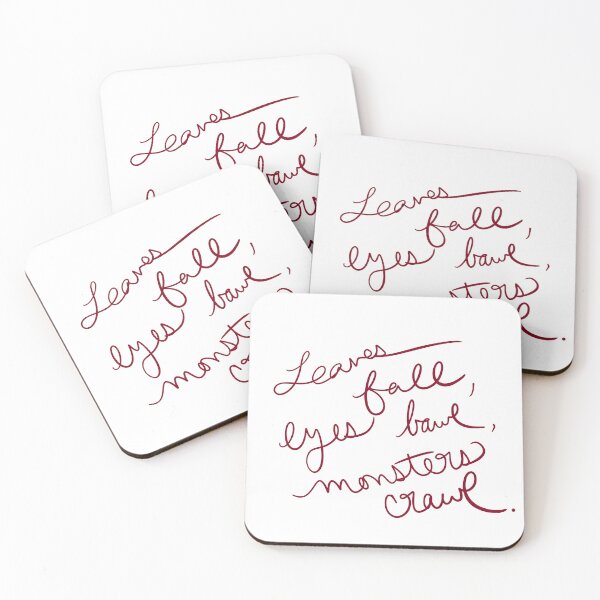 Leaves
fall,
bawl
Leaves
fall,
eyes bawl,
Leaves
fall,
eyes bawl,
monsters
Leaves
fall,
eyes bawl,
monsters
crawl.